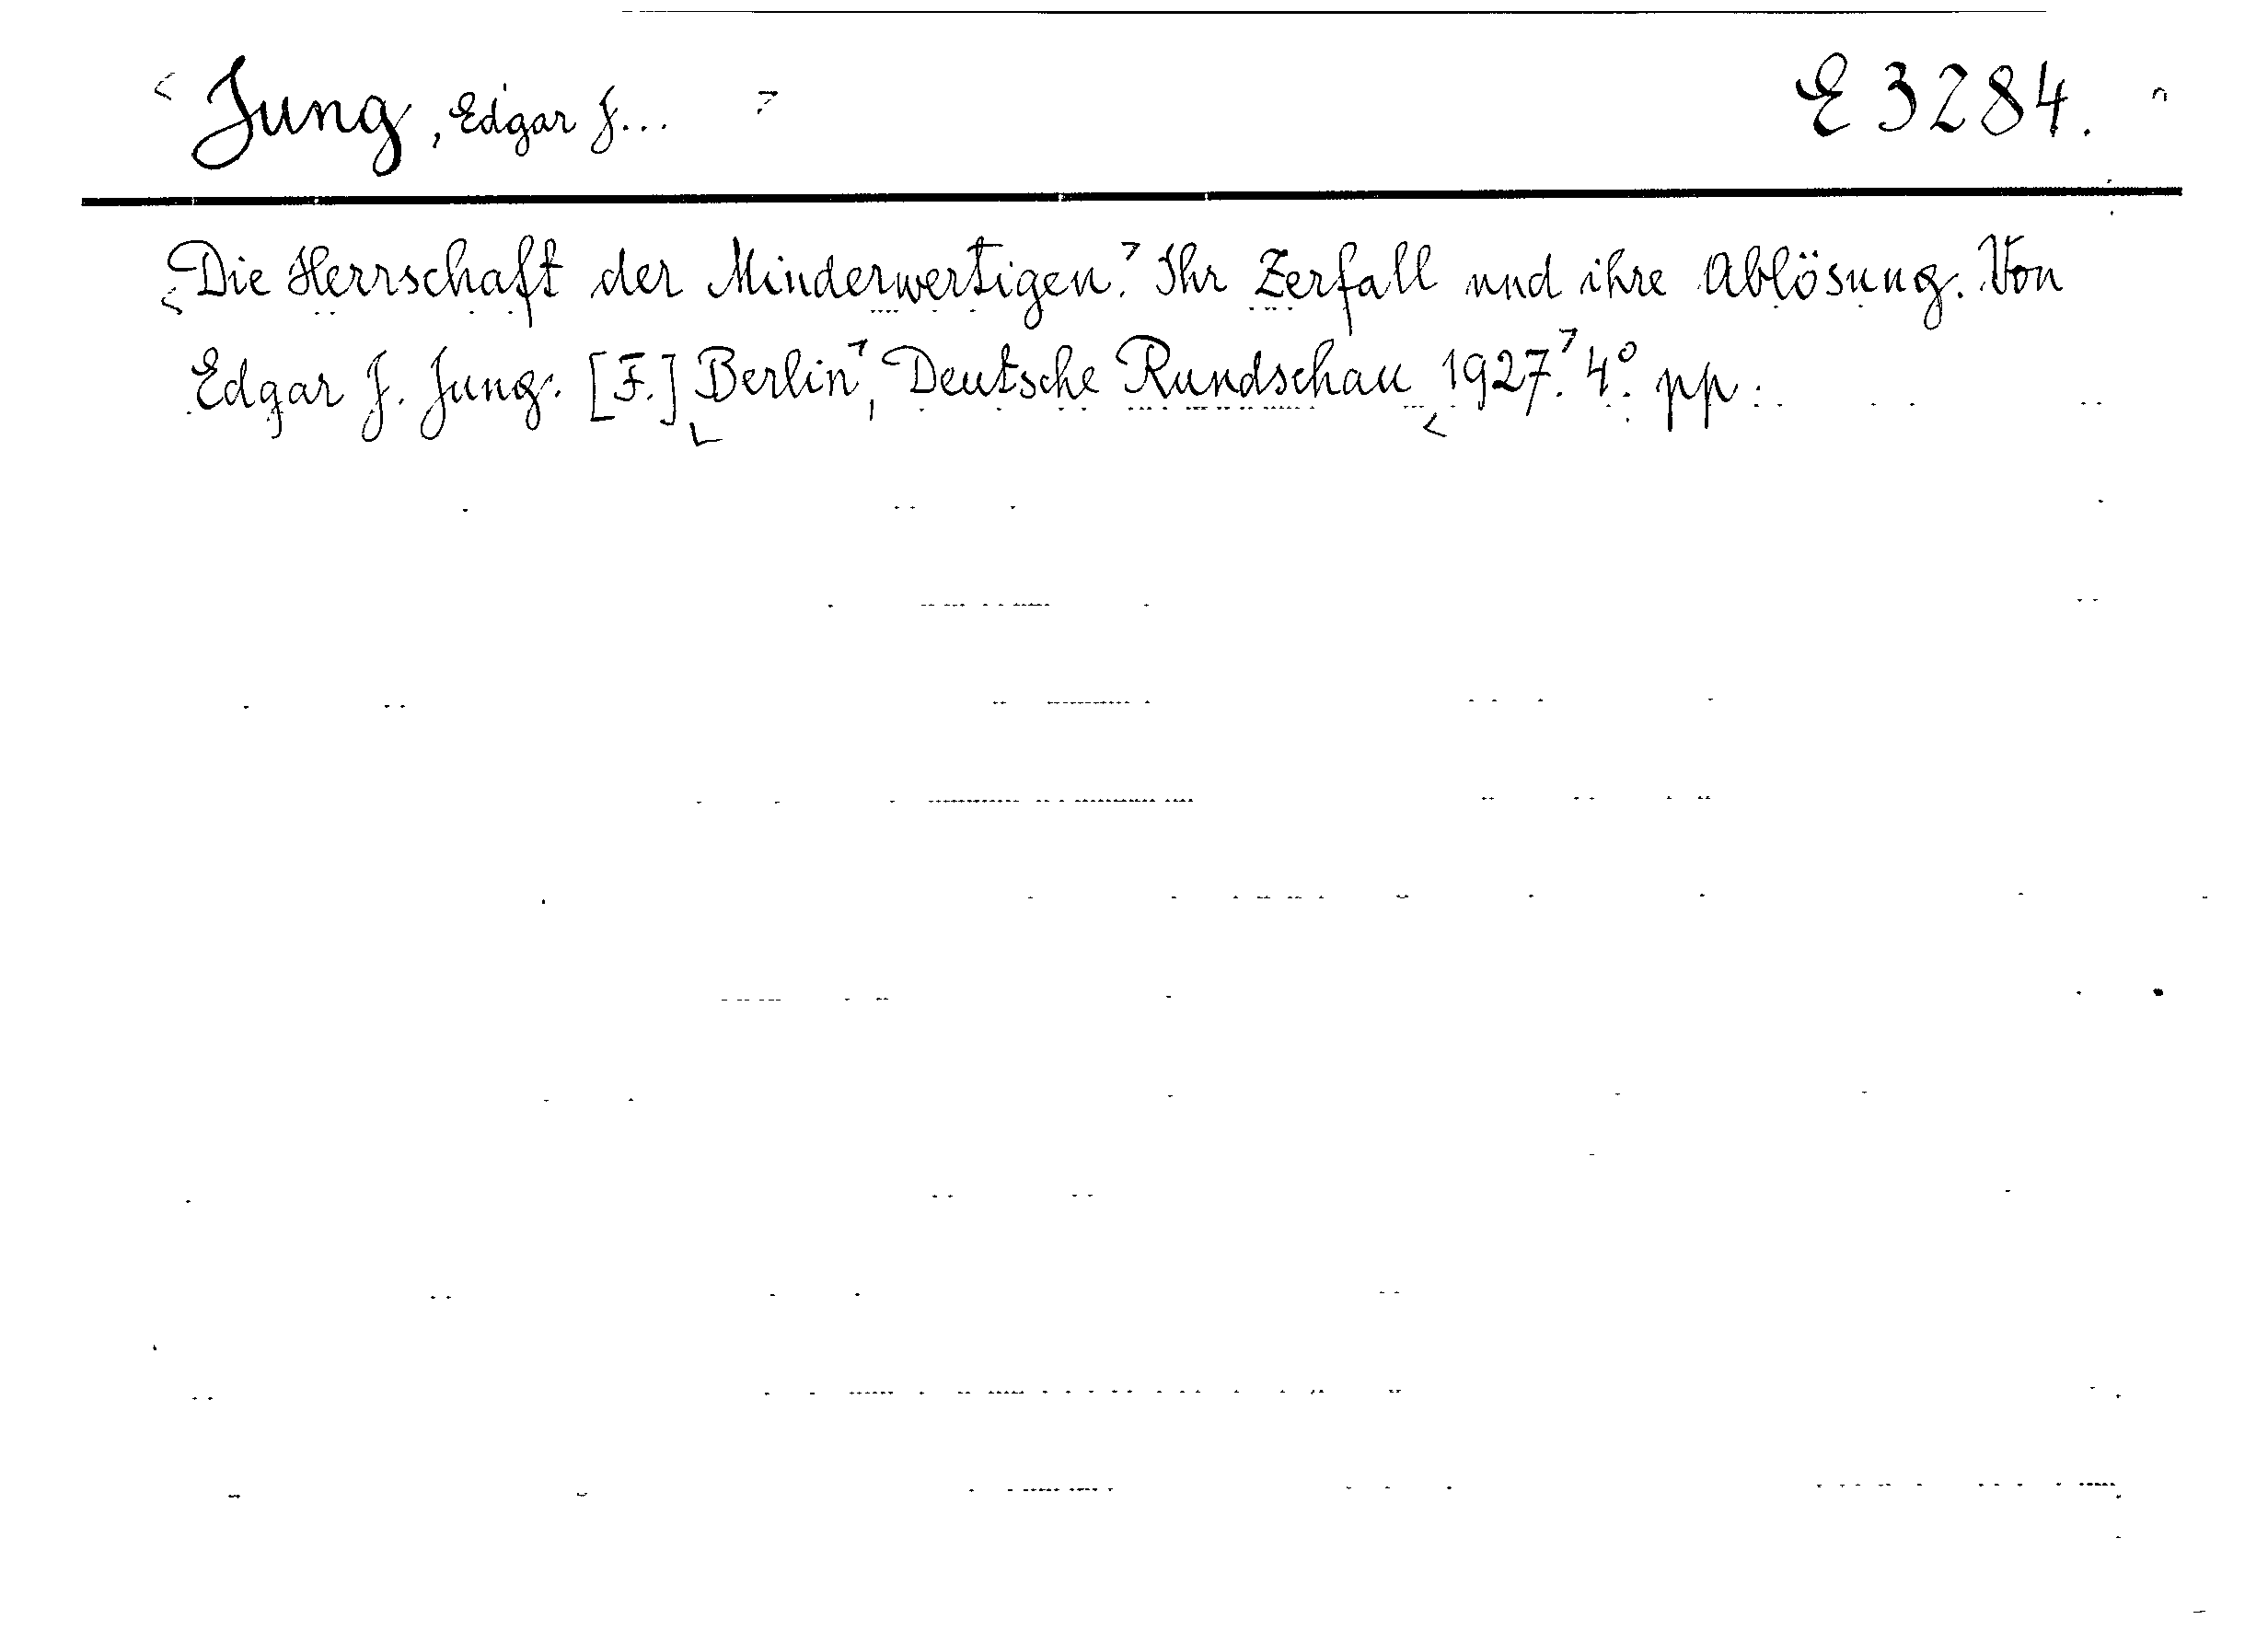 Jung, Edgar J... E 3284.
Die Herrschaft der Minderwertigen. Ihr Zerfall und ihre Ablösung. Von
Edgar J. Jung. [F.] Berlin, Deutsche Rundschau 1927. 4°. pp.